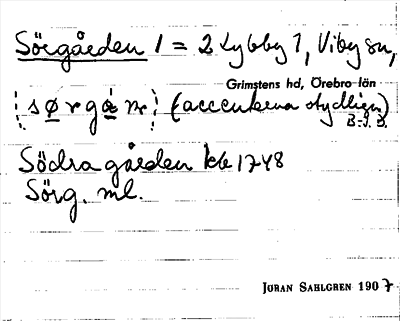 Sörgården 1 = 2 Lybby 1, Viby sn,
Grimstens hd, Örebro län
s ø r g å n (accenterna otydliga)
B-J. D.
Södra gården kb 1748
Sörg. ml.
JÖRAN SAHLGREN 1907